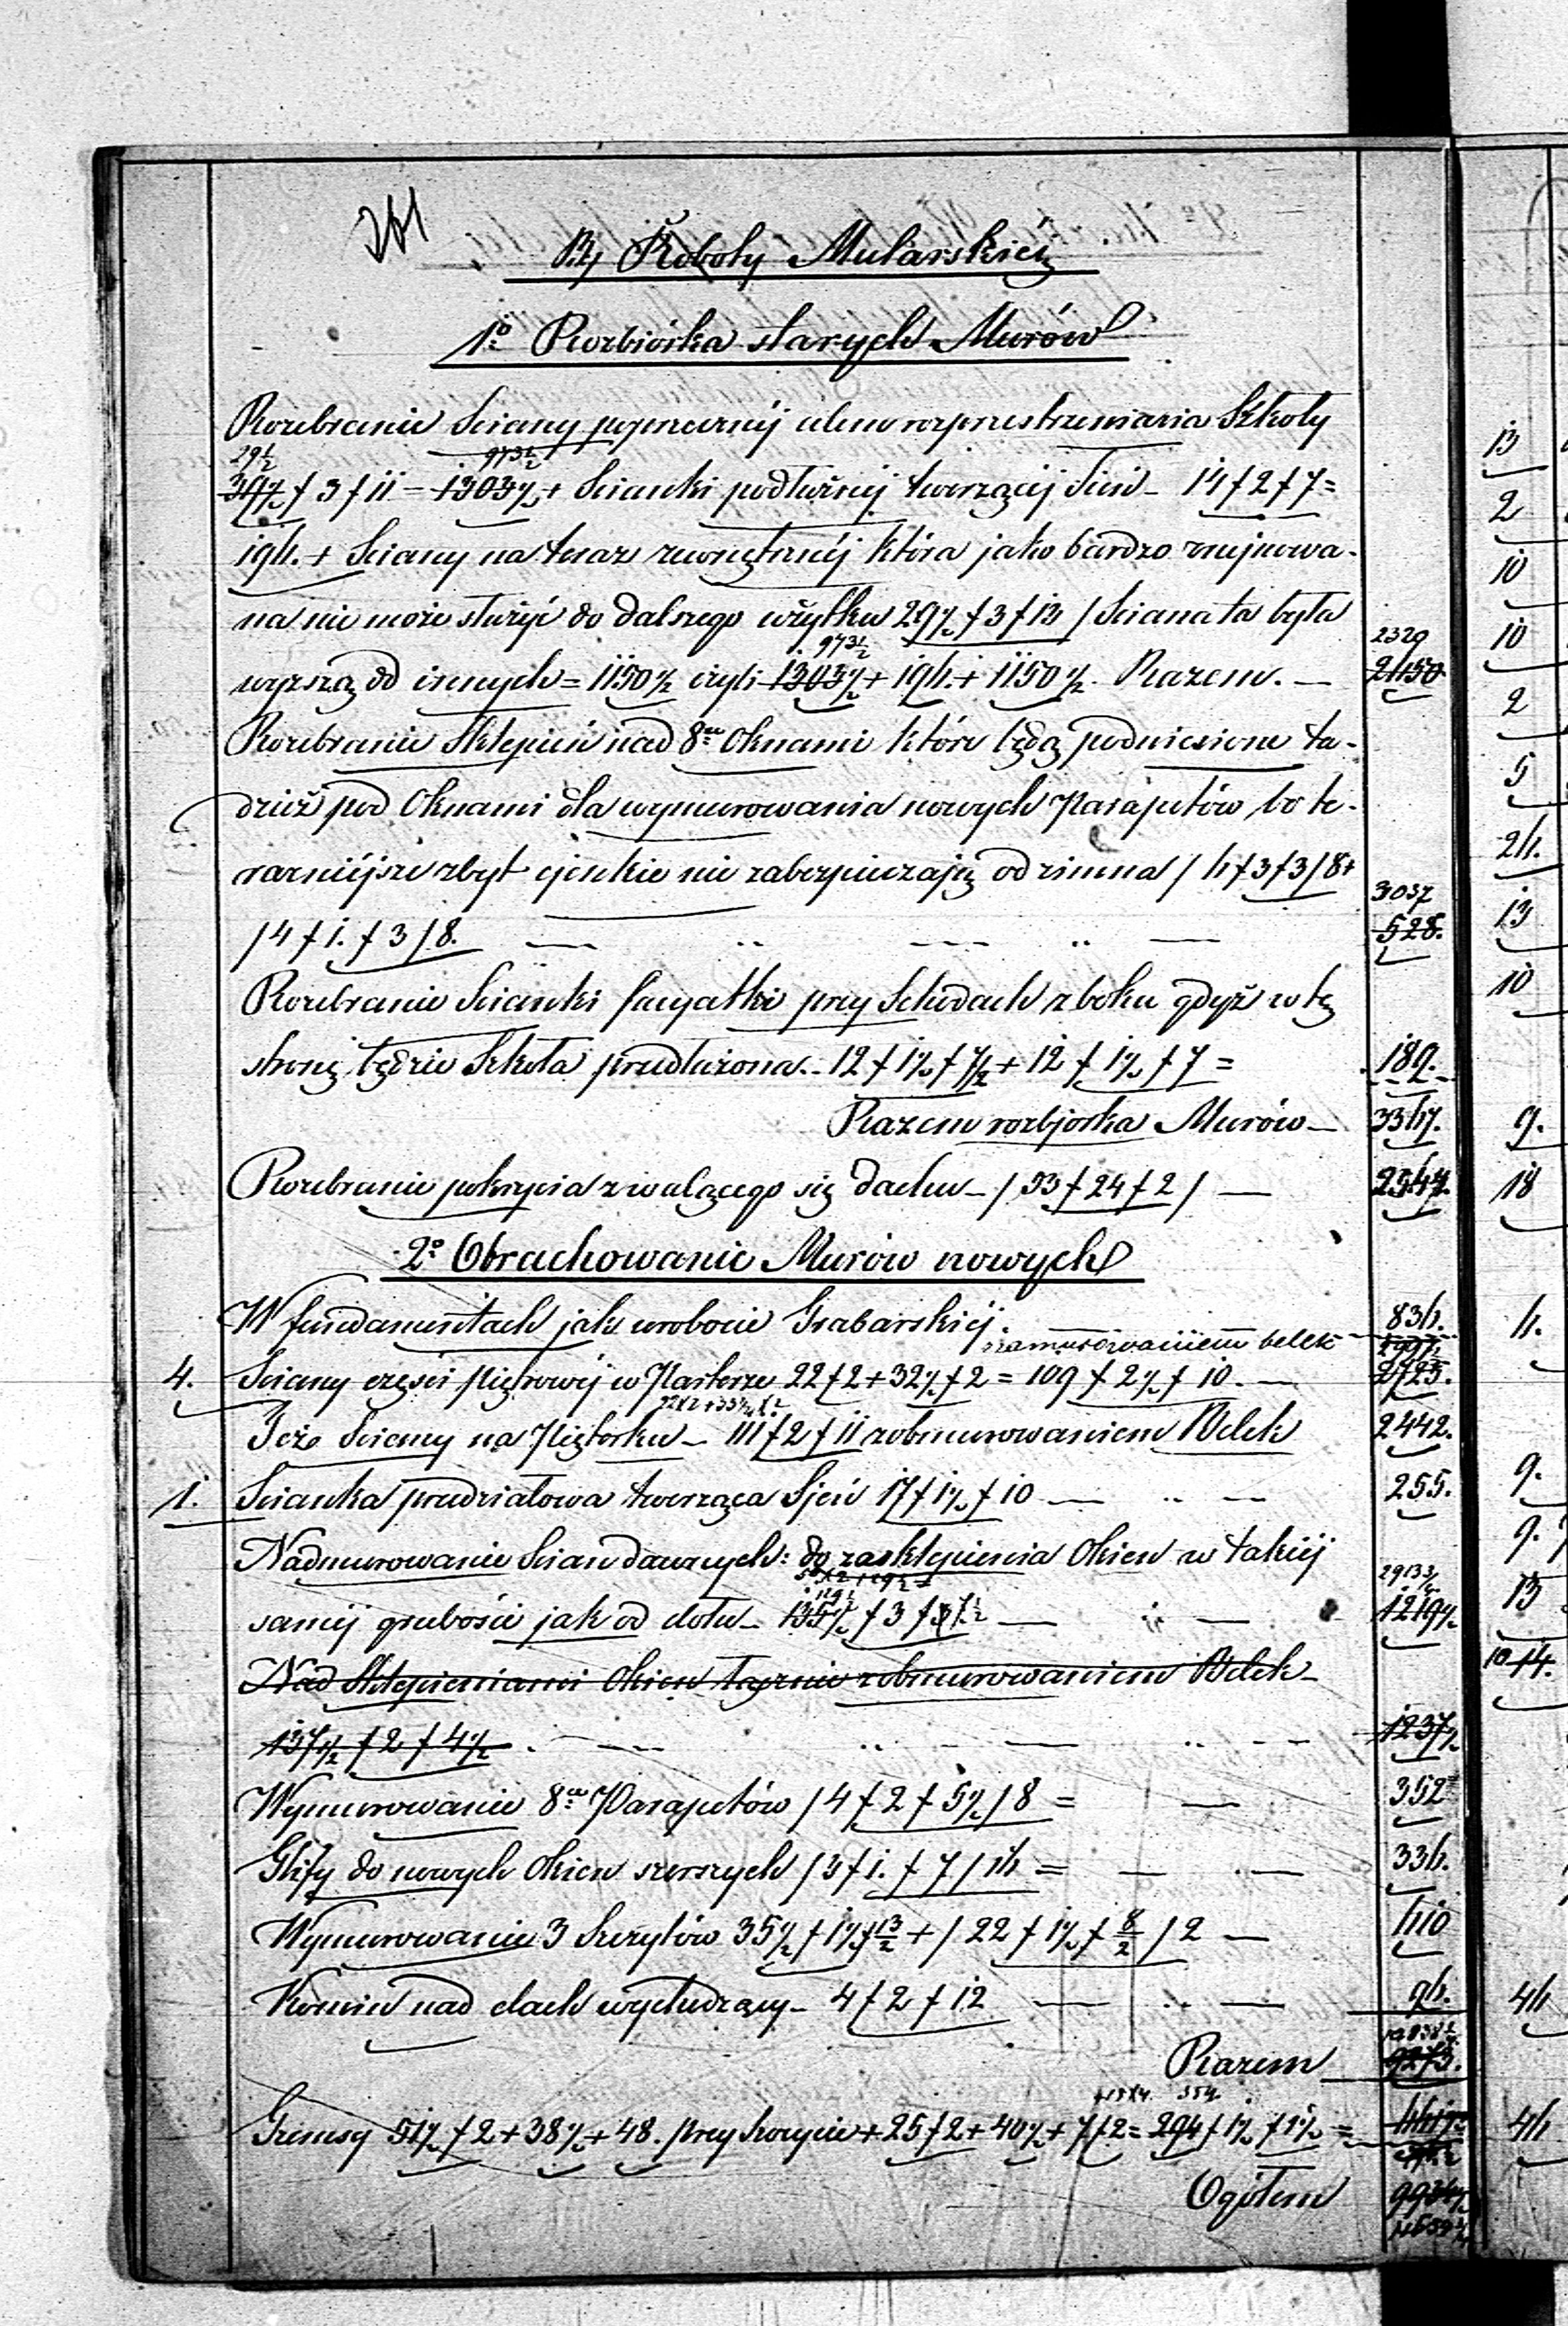 261
B, Roboty Mularskiej
1º Rozbiórka starych Murów
Rozebranie Sciany poprzecznéj celem rozprzestrzeniania Szkoły
29½ 973½
39½ f 3 f 11 = 1303½ + Scianki podłużnéj tworzącéj Sień – 14 f 2 f 7 =
196. + Sciany na teraz zewnętrznéj która jako bardzo zrujnowa-
na nie może służyć do dalszego użytku 29½ f 3 f 13 / Sciana ta była
973½ 2320
wyzszą od innych = 1150½ czyli 1303½ + 196. + 1150½. Razem. — 2650
Rozebranie Sklepień nad 8ᵘ Oknami które będą podniesione ta-
dzież pod Oknami dla wymurowania nowych Parapetów bo te-
raźniéjsze zbyt cienkie nie zabezpieczają od zimna / 6 f 3 f 3 / 8 +
3037
/ 4 f 1. f 3 / 8. — „ — „ — 528.
Rozebranie Scianki facyatki przy Schodach z boku gdyż w tę
stronę będzie Szkoła przedłużona. 12 f 1½ f 7/2 + 12 f 1½ f 7 = 189.
Razem rozbjorka Murów — 3367.
Rozebranie pokrycia z walącego się dachu – / 53 f 24 f 2 / — 2544.
2º Obrachowanie Murów nowych
W fundamentach jak w robocie Grabarskiéj. 836.
z zamurowaniem belek
4. Sciany części piętrowéj w Parterze 22 f 2 + 32½ f 2 = 109 f 2½ f 10. — 2725.
Też Sciany na Piętorku – 111 f 2 f 11 z obmurowaniem Belek 2442.
1. Scianka przedziałowa tworząca Sjeń 17 f 1½ f 10 — „ — 255.
Nadmurowanie Scian dawnych: do zasklepienia Okien w takiéj
saméj grubości jak od dołu – 135½ f 3 f 3 — „ — 1219½
Nad Sklepieniami Okien łącznie z obmurowaniem Belek –
137½ f 2 f 4½. — „ — — „ — 1237½
Wymurowanie 8ᵘ Parapetów / 4 f 2 f 5½ / 8 = — 352
Glify do nowych Okien szerszych / 3 f 1. f 7 / 16 = — „ — 336.
Wymurowanie 3 Szczytów 35½ f 1½ f 13/2 + / 22 f 1½ f 8/2 / 2 — 610
Komin nad dach wychodzący – 4 f 2 f 12 — „ — 96.
Razem 9273.
354.
Gzemsy 51½ f 2 + 38½ + 48. przy Szczycie + 25 f 2 + 40½ + 7 f 2 = 294 f 1½ f 1½ =
Ogółem
13
2
10
10
2
5
26.
13
10
9.
18
6.
9.
9.
13
14.
46
46